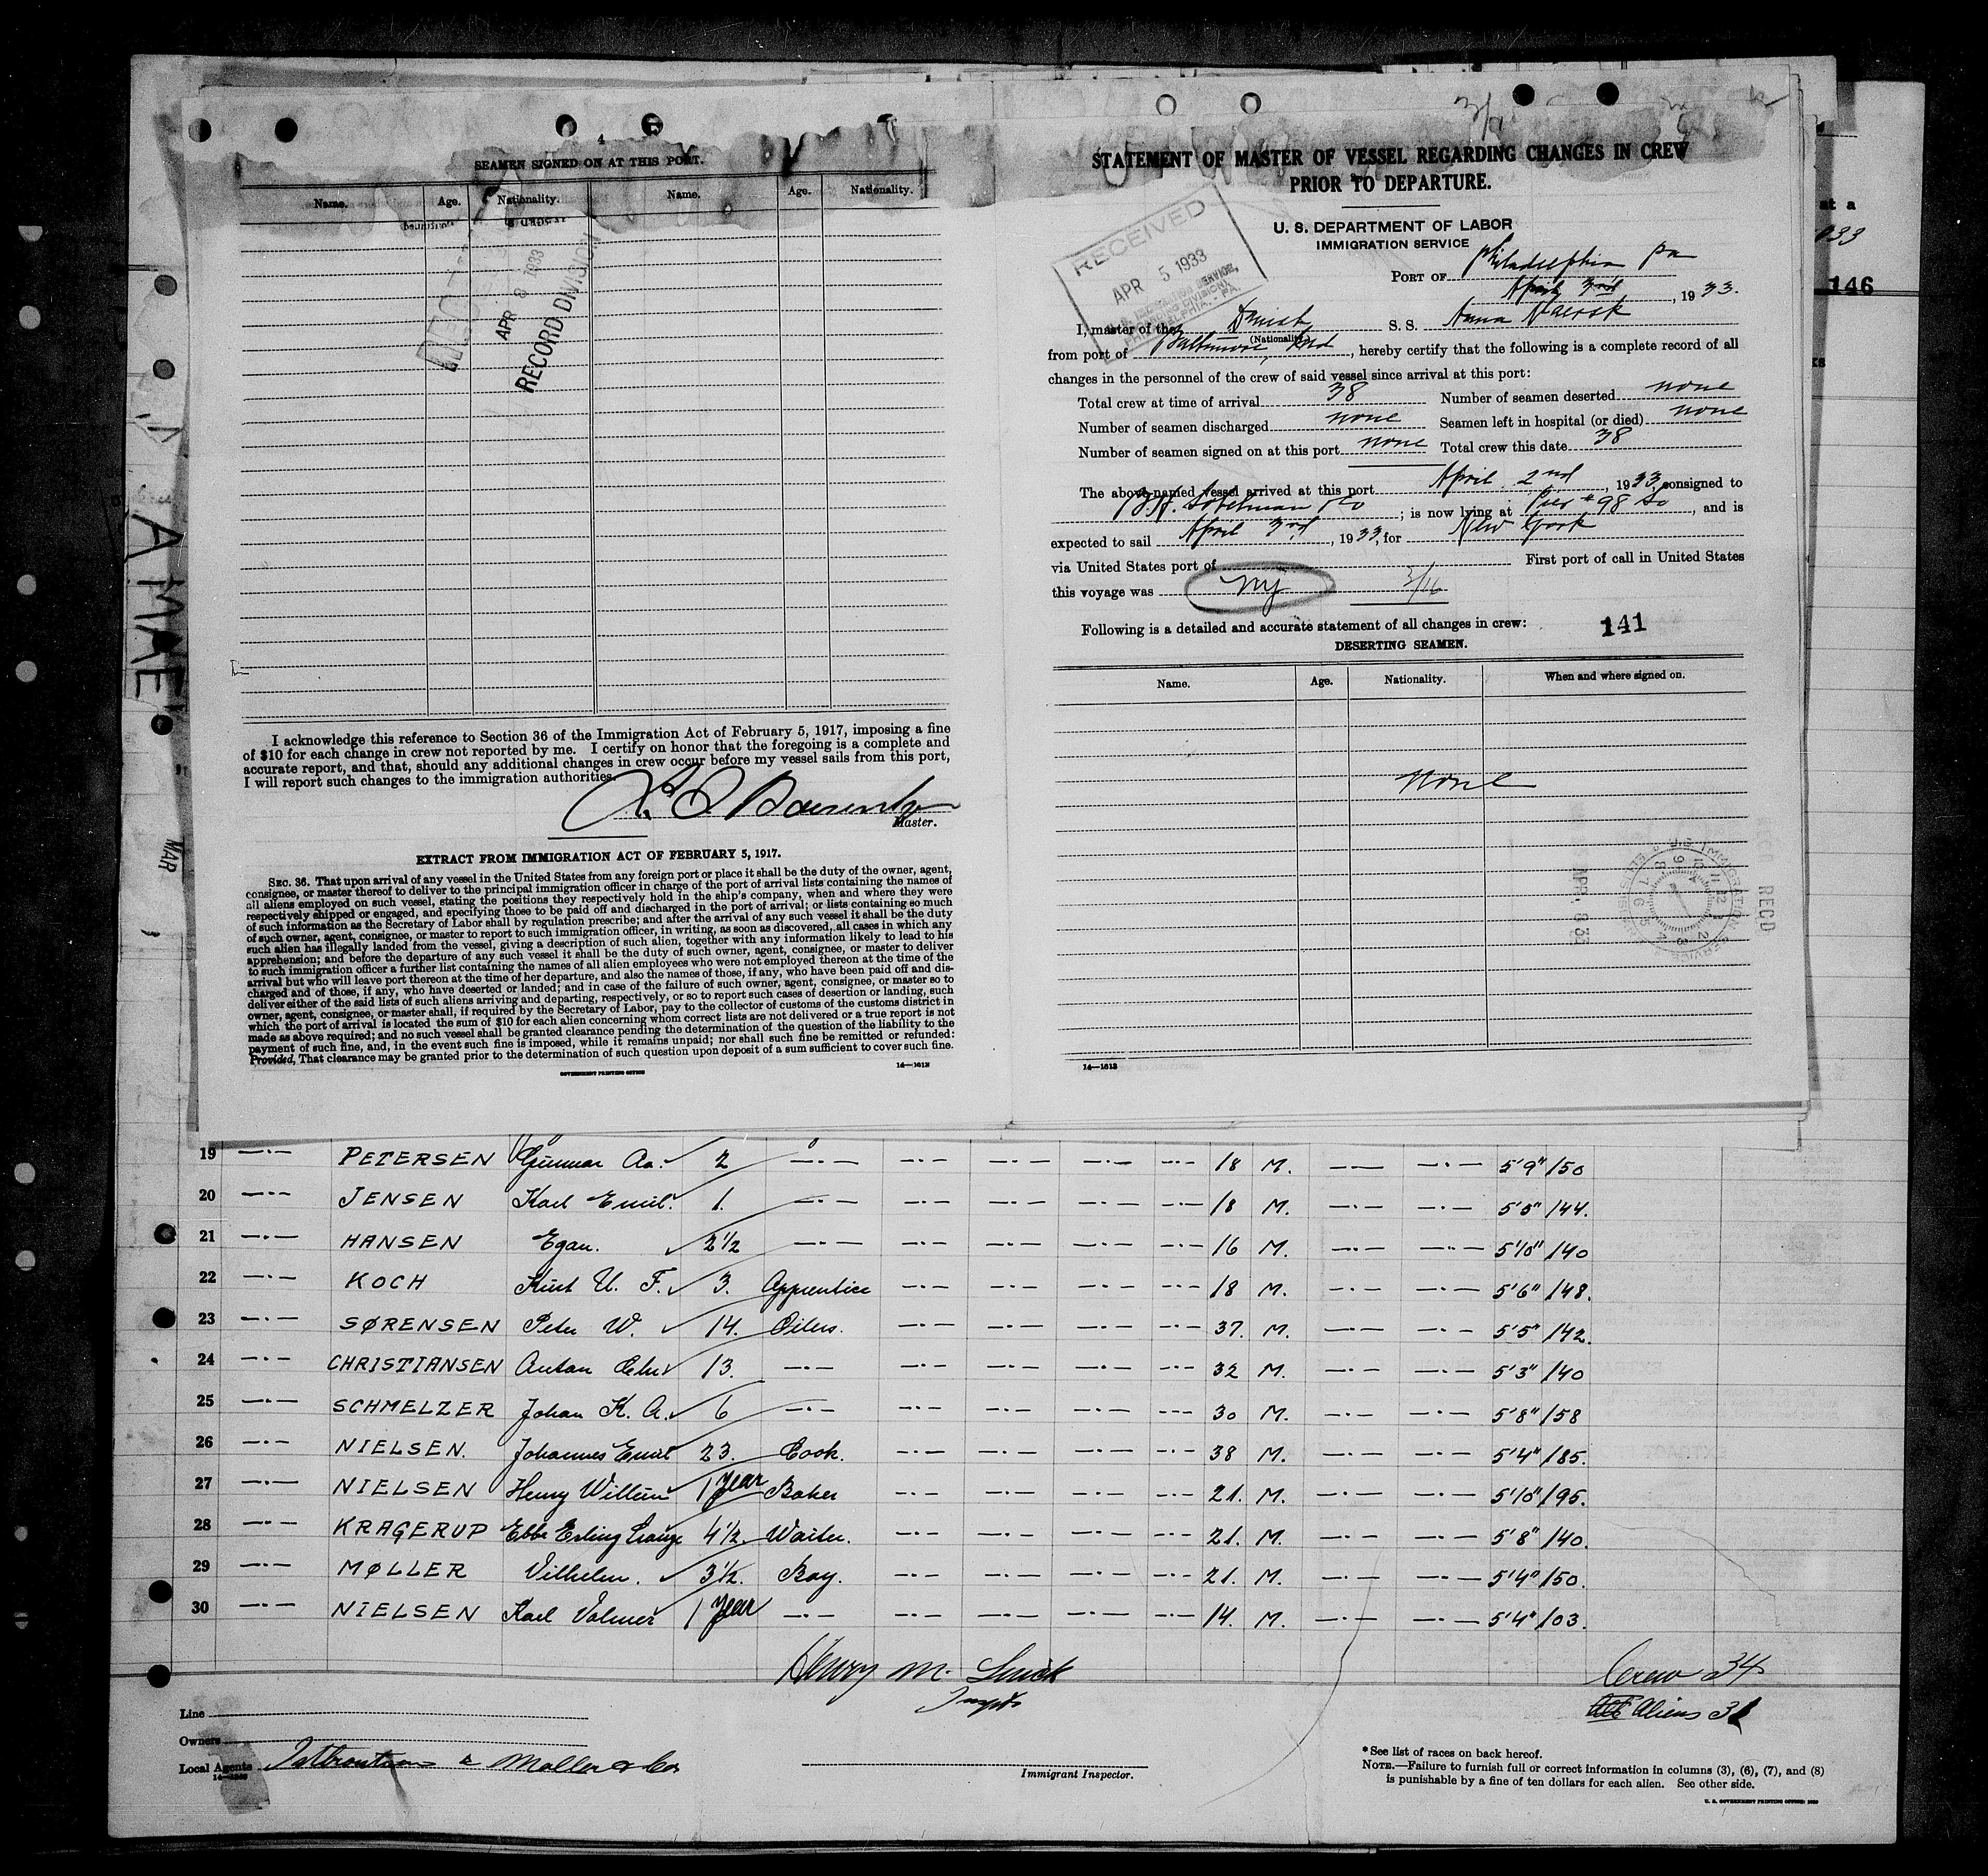 4
SEAMEN SIGNED ON AT THIS PORT.
Name. Age. Nationality. Name. Age. Nationality.
APR 8 1933
RECORD DIVISION
I acknowledge this reference to Section 36 of the Immigration Act of February 5, 1917, imposing a fine
of $10 for each change in crew not reported by me. I certify on honor that the foregoing is a complete and
accurate report, and that, should any additional changes in crew occur before my vessel sails from this port,
I will report such changes to the immigration authorities.
Master.
EXTRACT FROM IMMIGRATION ACT OF FEBRUARY 5, 1917.
SEC. 36. That upon arrival of any vessel in the United States from any foreign port or place it shall be the duty of the owner, agent,
consignee, or master thereof to deliver to the principal immigration officer in charge of the port of arrival lists containing the names of
all aliens employed on such vessel, stating the positions they respectively hold in the ship's company, when and where they were
respectively shipped or engaged, and specifying those to be paid off and discharged in the port of arrival; or lists containing so much
of such information as the Secretary of Labor shall by regulation prescribe; and after the arrival of any such vessel it shall be the duty
of such owner, agent, consignee, or master to report to such immigration officer, in writing, as soon as discovered, all cases in which any
such alien has illegally landed from the vessel, giving a description of such alien, together with any information likely to lead to his
apprehension; and before the departure of any such vessel it shall be the duty of such owner, agent, consignee, or master to deliver
to such immigration officer a further list containing the names of all alien employees who were not employed thereon at the time of the
arrival but who will leave port thereon at the time of her departure, and also the names of those, if any, who have been paid off and dis-
charged and of those, if any, who have deserted or landed; and in case of the failure of such owner, agent, consignee, or master so to
deliver either of the said lists of such aliens arriving and departing, respectively, or so to report such cases of desertion or landing, such
owner, agent, consignee, or master shall, if required by the Secretary of Labor, pay to the collector of customs of the customs district in
which the port of arrival is located the sum of $10 for each alien concerning whom correct lists are not delivered or a true report is not
made as above required; and no such vessel shall be granted clearance pending the determination of the question of the liability to the
payment of such fine, and, in the event such fine is imposed, while it remains unpaid; nor shall such fine be remitted or refunded:
Provided, That clearance may be granted prior to the determination of such question upon deposit of a sum sufficient to cover such fine.
GOVERNMENT PRINTING OFFICE 14—1613
STATEMENT OF MASTER OF VESSEL REGARDING CHANGES IN CREW
PRIOR TO DEPARTURE.
U. S. DEPARTMENT OF LABOR
IMMIGRATION SERVICE
RECEIVED
APR 5 1933
PHILADELPHIA, - PA.
PORT OF Philadelphia Pa
April 3rd, 1933.
I, master of the Danish S. S. Anna Maersk
(Nationality)
from port of Baltimore Md, hereby certify that the following is a complete record of all
changes in the personnel of the crew of said vessel since arrival at this port:
Total crew at time of arrival 38 Number of seamen deserted none
Number of seamen discharged none Seamen left in hospital (or died) none
Number of seamen signed on at this port none Total crew this date 38
The above-named vessel arrived at this port April 2nd, 1933, consigned to
B.H. Sobelman & Co; is now lying at Pier #98 So, and is
expected to sail April 3rd, 1933, for New York
via United States port of First port of call in United States
this voyage was NY 3/16
Following is a detailed and accurate statement of all changes in crew: 141
DESERTING SEAMEN.
Name. Age. Nationality. When and where signed on.
None
RECD
APR 8 33
U.S. IMMIGRATION SERVICE
14—1613
at a
933
146
MAR
19 —·— PETERSEN Gunnar Aa. 2 —·— —·— —·— —·— —·— 18 M. —·— —·— 5'9" 150
20 —·— JENSEN Karl Emil. 1. —·— —·— —·— —·— —·— 18 M. —·— —·— 5'8" 144.
21 —·— HANSEN Egan. 2½ —·— —·— —·— —·— —·— 16 M. —·— —·— 5'10" 140
22 —·— KOCH Kurt U. F. 3. Apprentice —·— —·— —·— —·— 18 M. —·— —·— 5'6" 148.
23 —·— SØRENSEN Peter W. 14. Oilers. —·— —·— —·— —·— 37. M. —·— —·— 5'5" 142.
24 —·— CHRISTIANSEN Anton Chr 13. —·— —·— —·— —·— —·— 32 M. —·— —·— 5'3" 140
25 —·— SCHMELZER Johan K. A. 6 —·— —·— —·— —·— —·— 30 M. —·— —·— 5'8" 158
26 —·— NIELSEN. Johannes Emil 23. Cook. —·— —·— —·— —·— 38 M. —·— —·— 5'4" 185.
27 —·— NIELSEN Henry Willem 1 year Baker —·— —·— —·— —·— 21. M. —·— —·— 5'10" 195.
28 —·— KRAGERUP Ebbe Erling Lange 4½. Waiter. —·— —·— —·— —·— 21. M. —·— —·— 5'8" 140.
29 —·— MØLLER Vilhelm. 3½. Boy. —·— —·— —·— —·— 21. M. —·— —·— 5'4" 150.
30 —·— NIELSEN Karl Volmer 1 year —·— —·— —·— —·— —·— 14. M. —·— —·— 5'4" 103.
Henry M.
Crew 34
Aliens
Line
Owners
Local Agents Moller & Co
Immigrant Inspector.
* See list of races on back hereof.
NOTE.—Failure to furnish full or correct information in columns (3), (6), (7), and (8)
is punishable by a fine of ten dollars for each alien. See other side.
U. S. GOVERNMENT PRINTING OFFICE